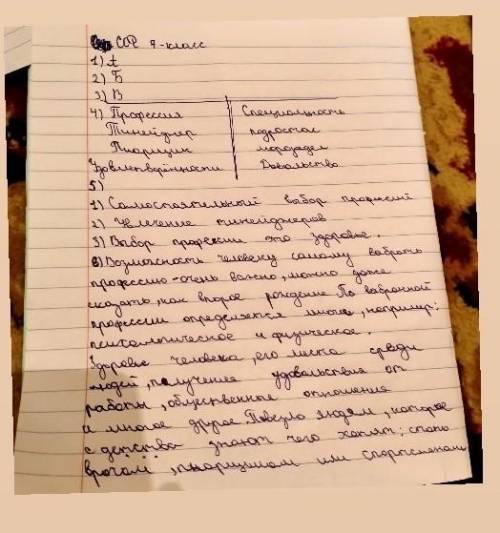 СОР 7-класс
1) А
2) Б
3) В
4) Профессия Специальность
Тинейджер подросток
Пиарщик
Удовлетворённости Довольство
5)
1) Самостоятельный выбор профессий
2) Увлечение тинейджеров
3) Выбор професии это здоровье.
6) Возможность человеку самому выбрать
професию-очень важно, можно даже
сказать, как второе рождение. По выбранной
профессии определяется многое, например:
психологическое и физическое.
Здоровье человека, его места среди
людей, получение удовольствия от
работы, общественные отношения
и многое другое. Повезло людям, которое
с детства знают чего хотят; стать
врачом, пиарщиком или спортсменом